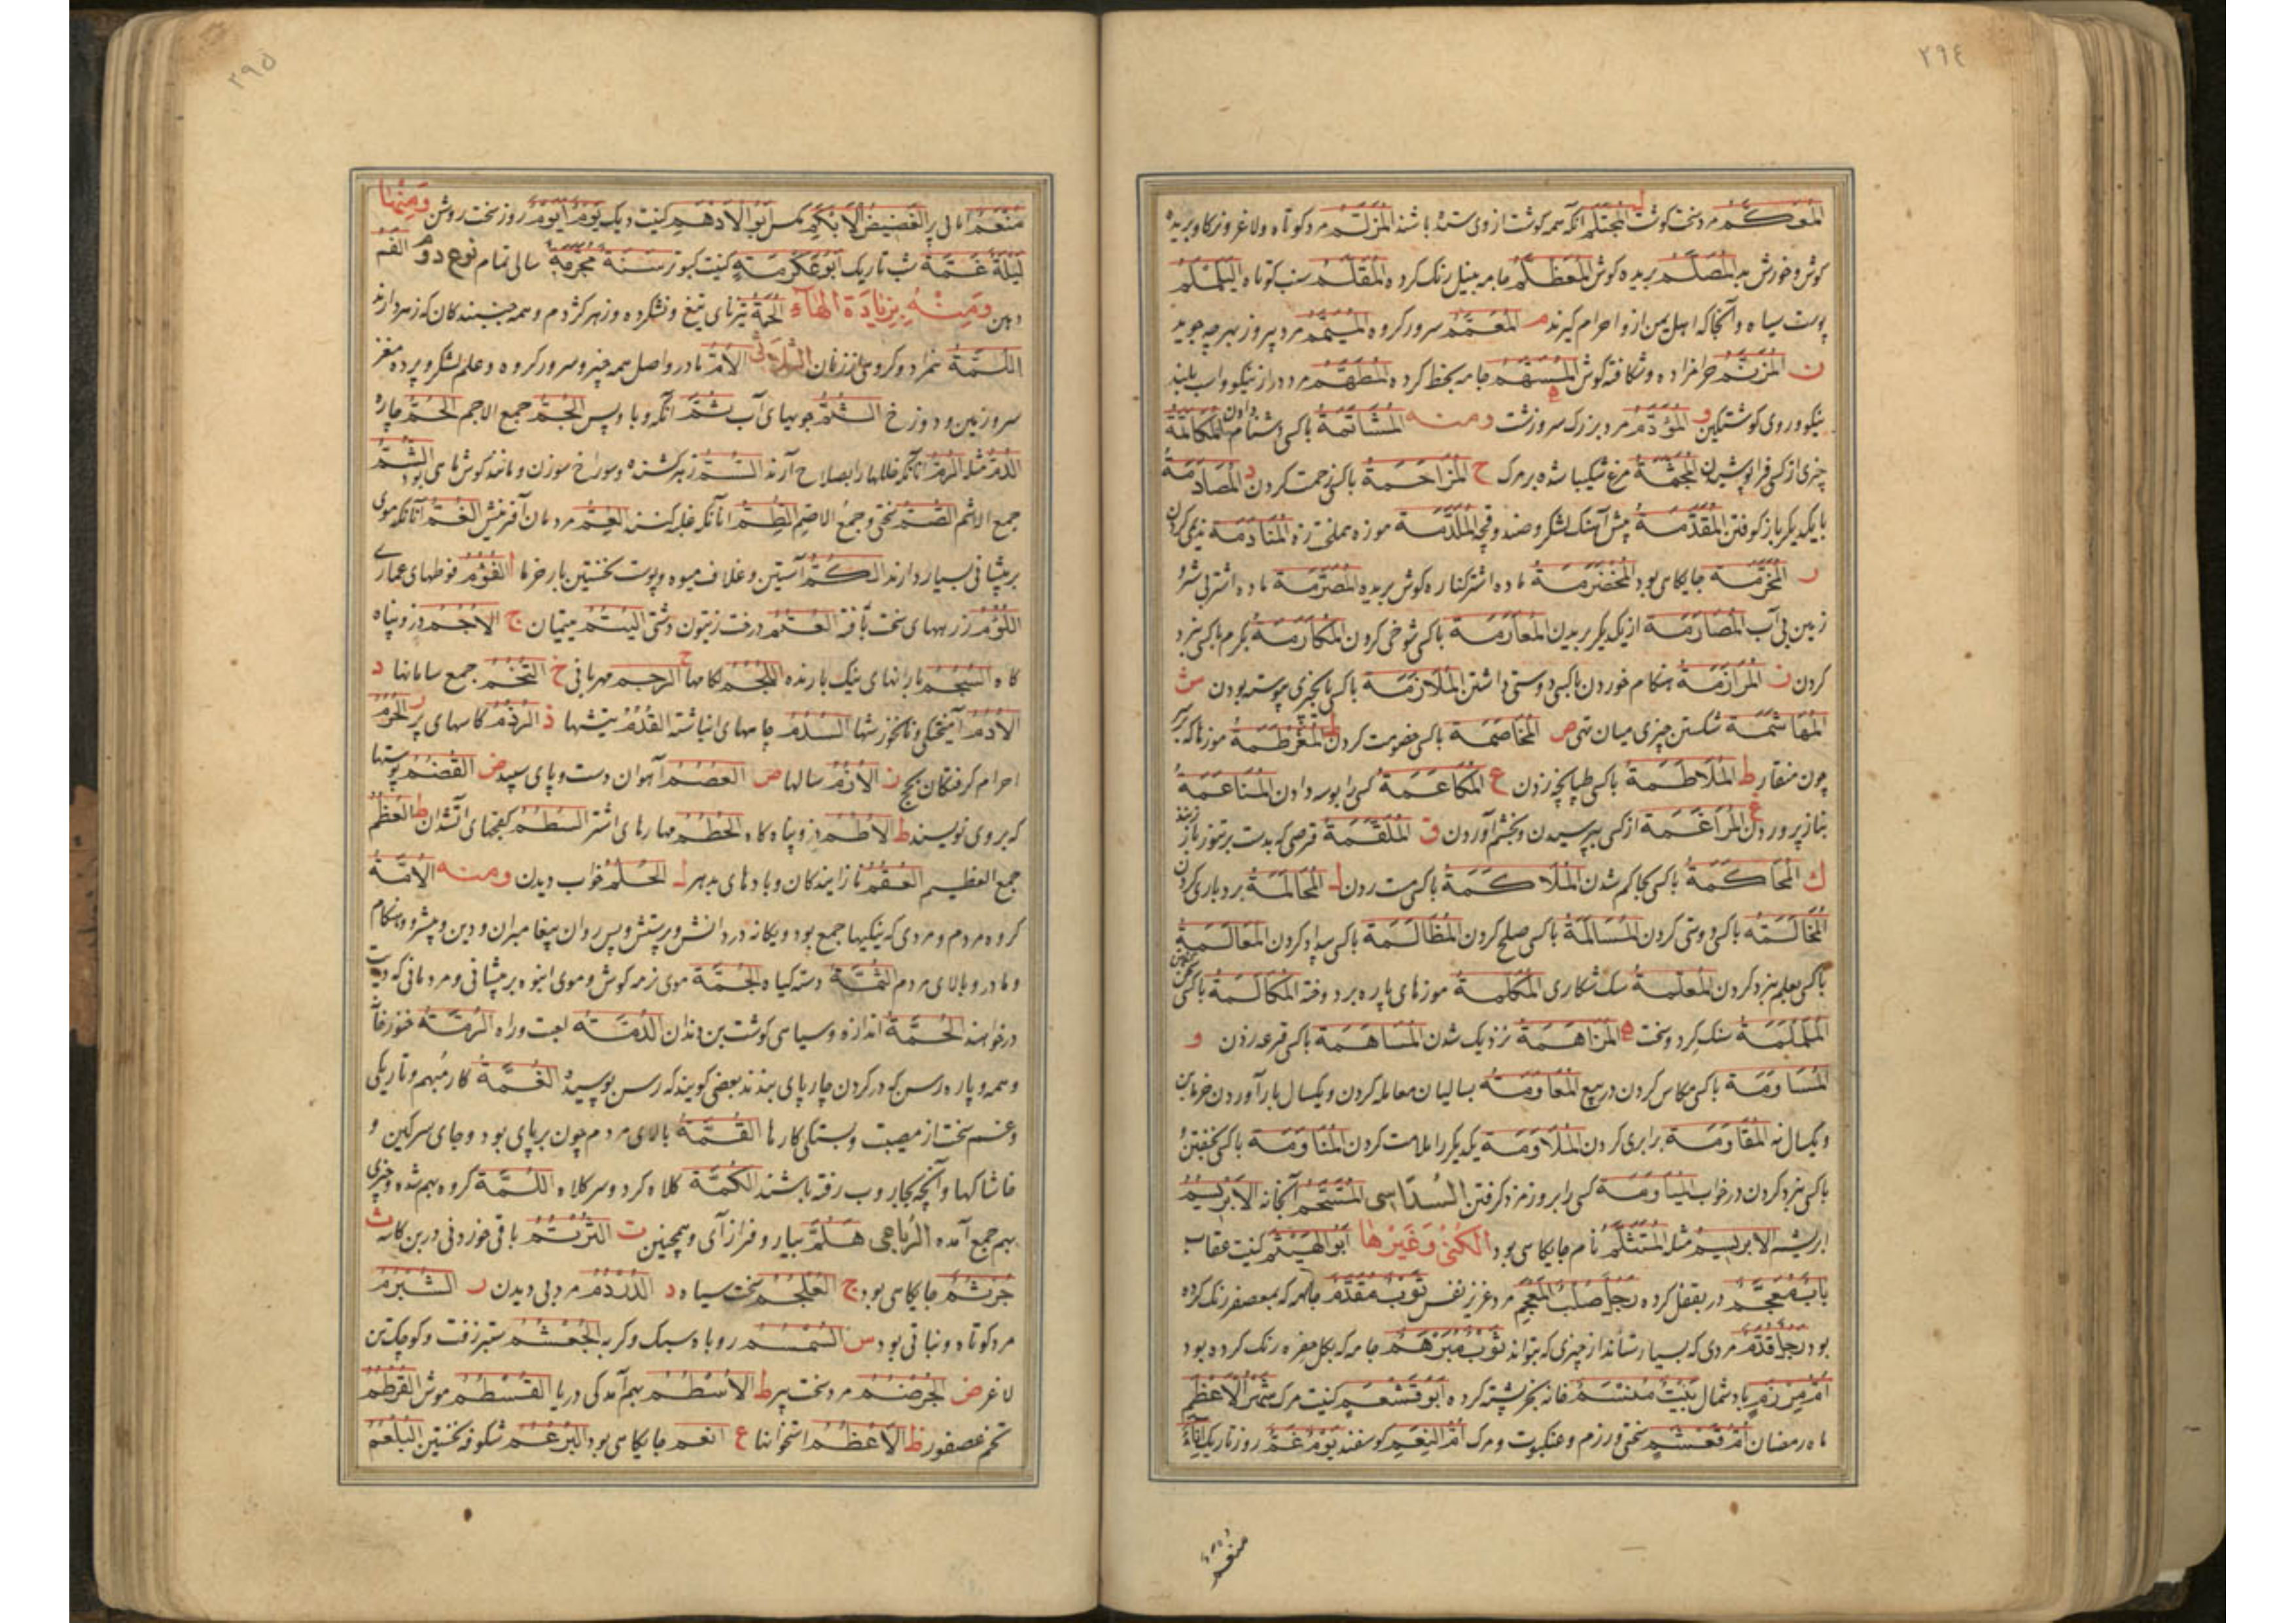 ٢٩٤
المعكّم مرد سخت کوشت المجتلم انکه همه کوشت از وی ستده باشند المزلّم مرد کوتاه ولاغر
کوش المصلّم بریده کوش المعظلم جامه بنیل رنک کرده المقلّم
پوست سیاه وانجا که اهل یمن ازو احرام کیرند م المعمّم سرور کروه المیمّم مرد پیروز بهر چه جوید
ن المزنّم حرامزاده وشکافته کوش ه المسهّم جامه بخط کرده المطهّم مرد دراز نیکو واسب بلند
نیکو وروی کوشتکین و المؤدّم مرد بزرک سرزشت ومنه المشاتمة باکسی دشنام دادن المکالمة
چیزی از کسی فرا پوشیدن المجثّمة مرغ شکیبا شده بر مرک ح المزاحمة باکسی زحمت کردن د المصادمة
بایکدیکر باز کوفتن المقدّمة پیش آهنک لشکر الملدّمة موزه المنادمة ندیمی کردن
ر المخرّمة جایکاهی بود المخضرمة ماده اشتر کناره کوش بریده المصرّمة ماده اشتر بی شیر و
زمین بی آب المصارمة از یکدیکر بریدن المعارمة باکسی شوخی کردن المکارمة بکرم باکسی نبرد
کردن ز المرازمة هنکام خوردن باکسی دوستی داشتن الملازمة باکسی یا بچیزی پیوسته بودن ش
الهاشمة شکستن چیزی میان تهی ص المخاصمة باکسی خصومت کردن ط موزها که
چون منقار ط الملاطمة باکسی طپانچه زدن ع المکاعمة کسی را بوسه دادن المناعمة
بناز پروردن غ المراغمة از کسی ببریدن وبخشم آوردن ق الملقّمة
ك المحاکمة باکسی بحاکم شدن الملاکمة باکسی مشت زدن ل المحالمة بردباری کردن
المخالمة باکسی دوستی کردن المسالمة باکسی صلح کردن المظالمة باکسی بیداد کردن المعالمة
باکسی بعلم نبرد کردن المعلّمة سک شکاری المکلّمة موزهای پاره بر دوخته المکالمة باکسی سخن کفتن
الململمة سنک کرد وسخت ه المزاهمة نزدیک شدن المساهمة باکسی قرعه زدن و
المساومة باکسی مکاس کردن در بیع المعاومة بسالیان معامله کردن ویکسال بار آوردن خرمابن
ویکسال نه المقاومة برابری کردن الملاومة یکدیکر را ملامت کردن المناومة باکسی بخفتن و
باکسی نبرد کردن در خواب المیاومة کسی را بروز مزد کرفتن السداسی المستحم آبخانه الابریسم
ابریشم الابریسم مثله المتثلّم نام جایکاهی بود الکنی وغیرها ابو الهیثم کنیت عقاب
باب معجم در بقفل کرده رجل صلب المعجم مرد عزیز نفس ثوب مفدّم جامه که بمعصفر رنک کرده
بود رجل قذم مردی که بسیار ستاند از چیزی که بتواند ثوب مبرهم جامه که بکل رنک کرده بود
ام مرزم باد شمال بیت مسنّم خانه خرپشته کرده ابو قشعم کنیت مرک شهر الاعظم
ماه رمضان ام قعشم سختی ورزم وعنکبوت ومرک ام النعیم کوسفند یوم غم روز تاریک
منعم
٢٩٥
منعم کنیت دیک یوم ایوم روز سخت روشن ومنها
لیلة غمّة شب تاریک ابو عکرمة کنیت کبوتر سنة مجرّمة سالی تمام نوع دوم الفم
دهن ومنه بزیادة الهاء الحمة تیزنای تیغ ونشکرده وزهر کژدم وهمه جنبندکان که زهر دارند
اللمة همزاد وکروهی از زنان الثلاثی الام مادر واصل همه چیز وسرور کروه وعلم لشکر وپرده مغز
سر وزمین ودوزخ الثمّ جویهای آب الجمّ جمع الاجم الحمّ چاره
الذمّ مثله الرمّ انانکه خللها را بصلاح آرند السمّ زهر کشنده وسوراخ سوزن ومانند کوش ماهی بود الشمّ
جمع الاشم الصمّ سختی وجمع الاصم الطمّ انانکه غلبه کنند العمّ مردمان آفرینش الغمّ آنانکه موی
بر پیشانی بسیار دارند الکمّ آستین وغلاف میوه وپوست نخستین بار خرما أ الفؤم فوطهای عماری
اللؤم زرههای سخت بافته العتم درخت زیتون دشتی الیتم یتیمان ج الاجم دز وپناه
کاه السجم بارانهای نیک بارنده اللجم لکامها ح الرحم مهربانی خ التخم جمع سامانها د
الادم آمیختکی ونانخورشها السدم چاههای انباشته القدم پیشیها ذ الرذم کاسهای پر ر الحرم
احرام کرفتکان بحج ز الازم سالها ص العصم آهوان دست وپای سپید ض القضم پوستها
که بر وی نویسند ط الاطم دز وپناه کاه الخطم مهارهای اشتر السطم ظ العظم
جمع العظیم العقم نازایندکان وبادهای بدبهر ل الحلم خواب دیدن ومنه الامّة
کروه مردم ومردی که نیکیها جمع بود ویکانه در دانش وپرستش وپس روان پیغامبران ودین وپیشرو وهنکام
ومادر وبالای مردم الثمّة دسته کیاه الجمّة موی نرمه کوش وموی انبوه بر پیشانی ومردمانی که دیت
درخواهند الحمّة اندازه وسیاهی کوشت بن دندان الدمّة لعبت وراه الرمّة
وهمه وپاره رسن که در کردن چارپای بندند بعضی کویند که رسن پوسیده الغمّة کار مبهم وتاریکی
وغم سخت از مصیبت وبستکی کارها القمّة بالای مردم چون بر پای بود وجای سرکین و
خاشاکها وآنچه بجاروب رفته باشند الکمّة کلاه کرد وسر کلاه اللمّة کروه بهم شده وچیزی
بهم جمع آمده الرباعی هلمّ بیار وفراز آی وهمچنین ت الترتم باقی خوردنی در بن کاسه ث
جرثم جایکاهی بود ج العلجم سخت سیاه د الدردم مرد بی دیدن ر الشبرم
مرد کوتاه ونباتی بود س السمسم روباه سبک وکربه الجعشم ستبر زفت وکوچک تن
لاغر ض الجرضم مرد سخت پیر ط الاسطم بهم آمدکی دریا القسطم موش القرطم
تخم عصفور ظ الاعظم استخوانها ع انعم جایکاهی بود البرعم شکوفه نخستین البلعم